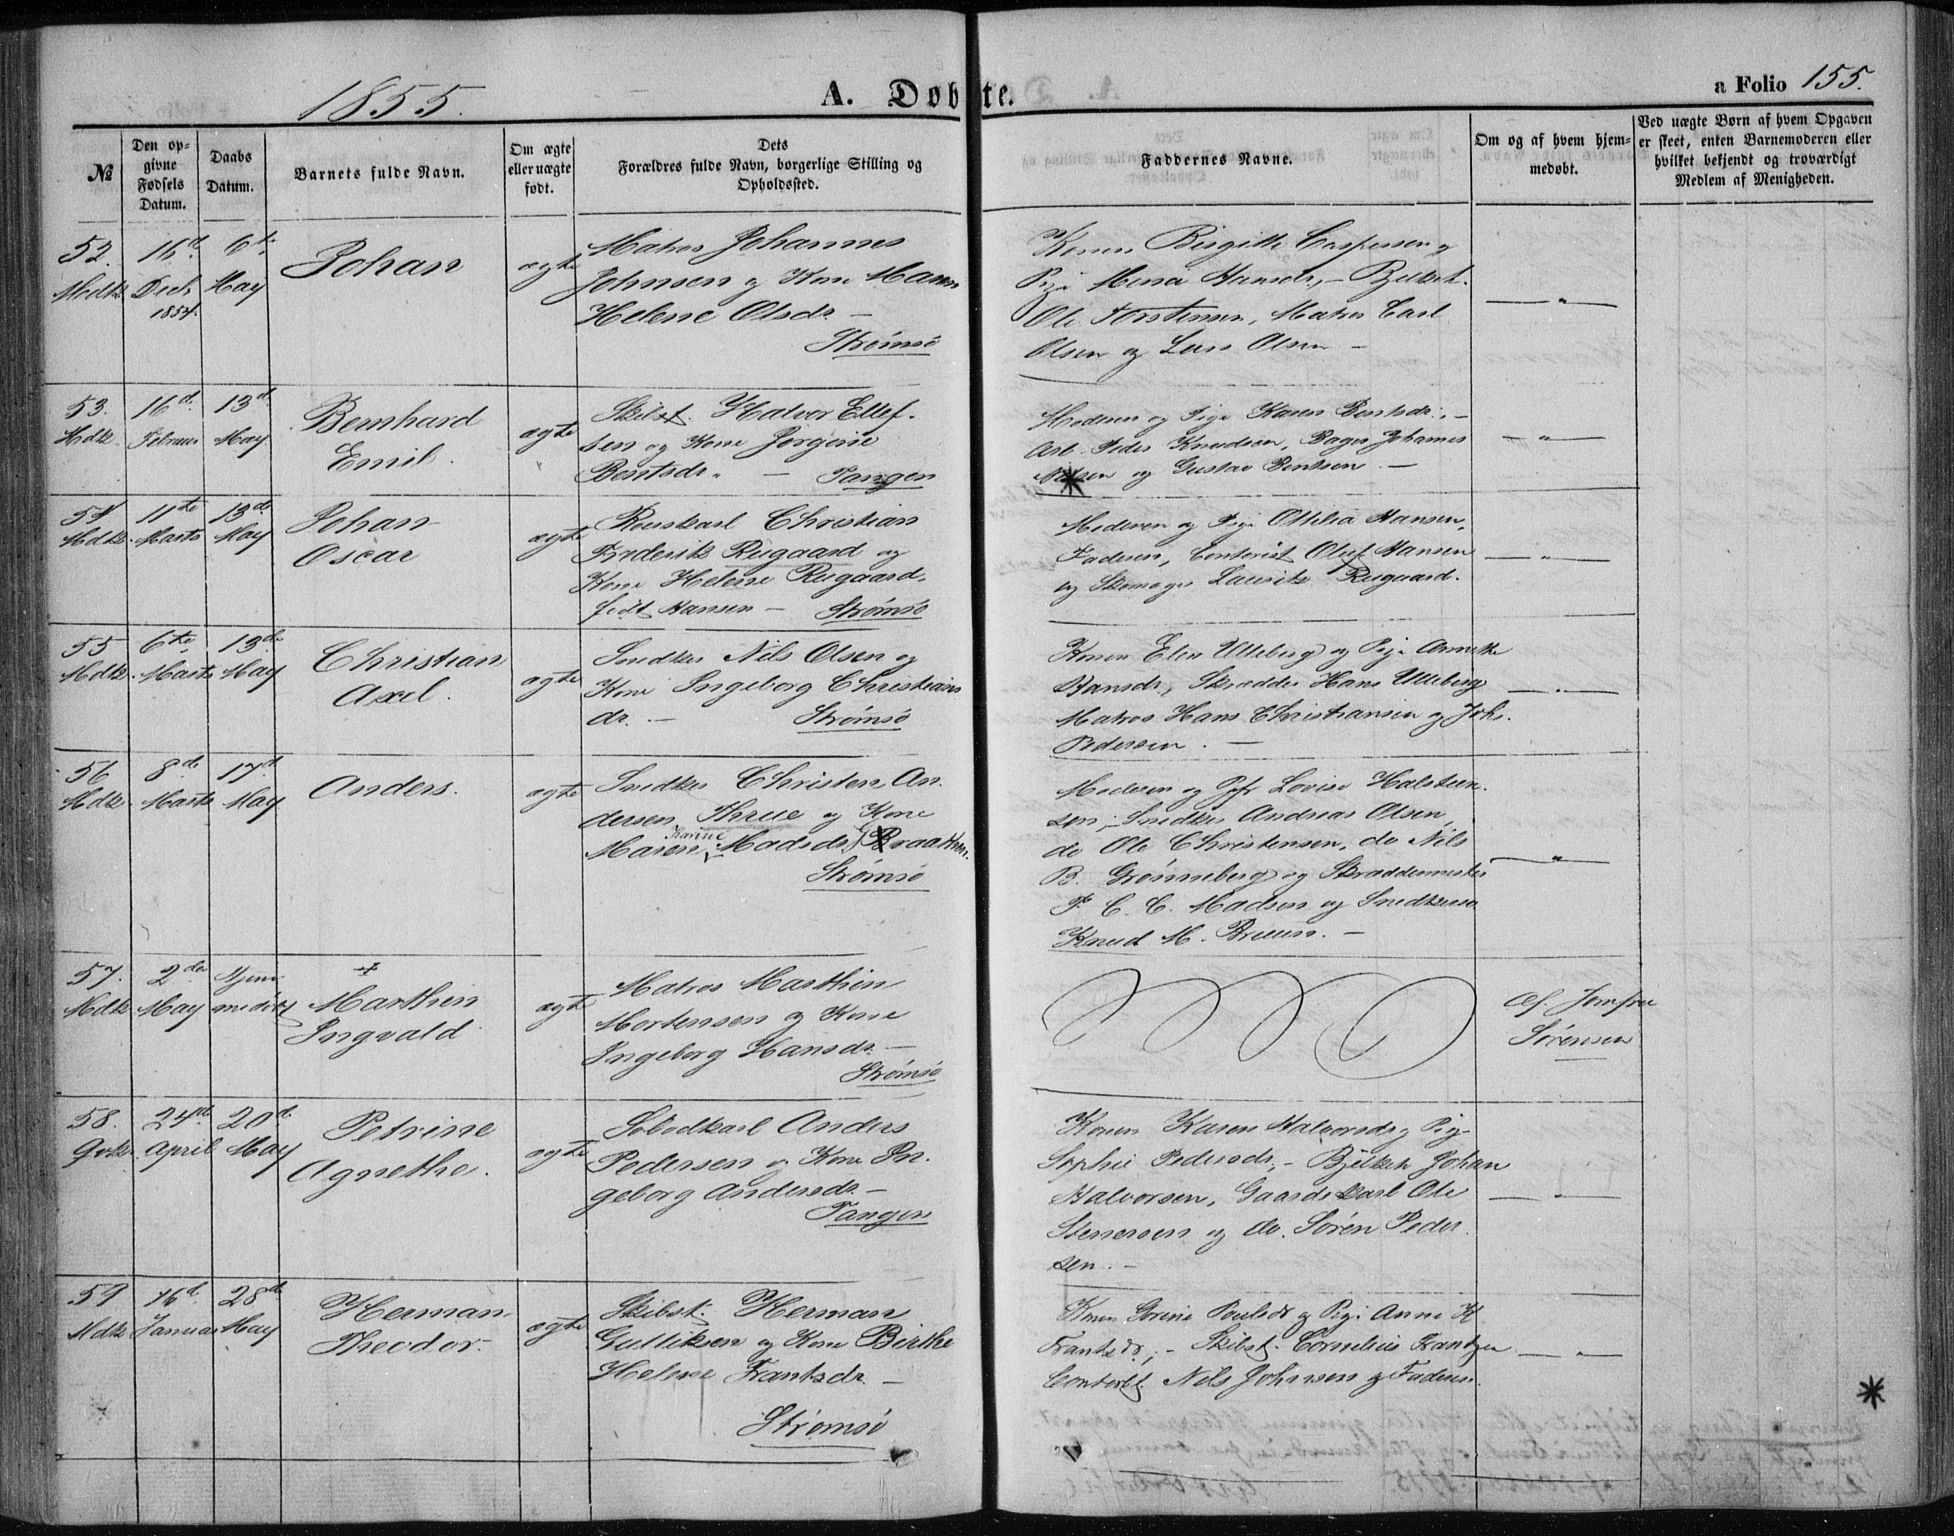 1855.
A. Døbte.
a Folio 155.
№
Den opgivne Fødsels Datum.
Daabs Datum.
Barnets fulde Navn.
Om ægte eller uægte født.
Dets Forældres fulde Navn, borgerlige Stilling og Opholdssted.
Faddernes Navne.
Om og af hvem hjemmedøbt.
Ved uægte Børn af hvem Opgaven er skeet, enten Barnemoderen eller hvilket bekjendt og troværdigt Medlem af Menigheden.
52.
Mdk.
16d
Decb
1854.
6te
May
Johan
ægte
Matros Johannes
Johnsen og Kone Maren
Helene Olsdr. —
Strømsø
Konen Birgitte Caspersen og
Pige Mina Hansdr, – Bjelkeh.
Ole Torstensen, Matros Carl
Olsen og Lars Olsen —
— " —
53.
Mdk.
16d.
Februar
13d.
May
Bernhard
Emil.
ægte
Skibst. Halvor Ellef-
sen og Kone Jørgine
Bentsdr. — Tangen
Moderen og Pige Karen Bentsdr. –
Arb. Peder Knudsen, Bager Johannes
Nilsen og Gustav Bentsen. —
— " —
54
Mdk.
11te
Marts
13de
May
Johan
Oscar
ægte
Christian
Frederik Rugaard og
Kone Helene Rugaard,
født Hansen — Strømsø
Moderen og Pige Othilia Hansen,
Faderen, Contorist Oluf Hansen
og Skomager Lauritz Rugaard.
— " —
55
Mdk.
6te
Marts
13de
May
Christian
Axel.
ægte
Snedker Nils Olsen og
Kone Ingeborg Christians
dr. — Strømsø
Konen Elen Ulleberg og Pige Annethe
Hansdr, Skrædder Hans Ulleberg
Matros Hans Christiansen og Johs.
Pedersen. —
— " —
56
Mdk.
8de
Marts
17d.
May
Anders.
ægte
Snedker Christen An-
dersen Thrue og Kone
Karine
Maren Madsdr. Braathen.
Strømsø
Moderen og Jfr Lovise Halsteen-
sen, Snedker Andreas Olsen,
do Ole Christensen, do Nils
B. Grønneberg og Skræddermester
P. C. C. Madsen og Snedkersv.
Knud M. Bruun. —
— " —
57.
Mdk
2den
May
Hjem-
medøbt
Marthin
Ingvald
ægte
Matros Marthin
Mortensen og Kone
Ingeborg Hansdr. —
Strømsø
af Jomfru
Sørensen
58.
Qvk.
24d.
April
20d.
May
Petrine
Agnethe.
ægte
Anders
Pedersen og Kone In-
geborg Andersdr. —
Tangen
Konen Karen Halvorsdr, Pige
Sophie Pedersdr, – Bjelkeh Johan
Halvorsen, Gaardskarl Ole
Stenersen og do. Søren Peder-
sen. –
— " —
59
Mdk
16d.
Januar
28d
May
Herman
Theodor.
ægte
Skibst. Herman
Gulliksen og Kone Birthe
Helene Frantsdr. —
Strømsø
Konen Gorine Paulsdr og Pige Anne H.
Frantsdr, – Skibst. Cornelius Frantzen
Contorbt. Nils Johnsen og Faderen.
— " —